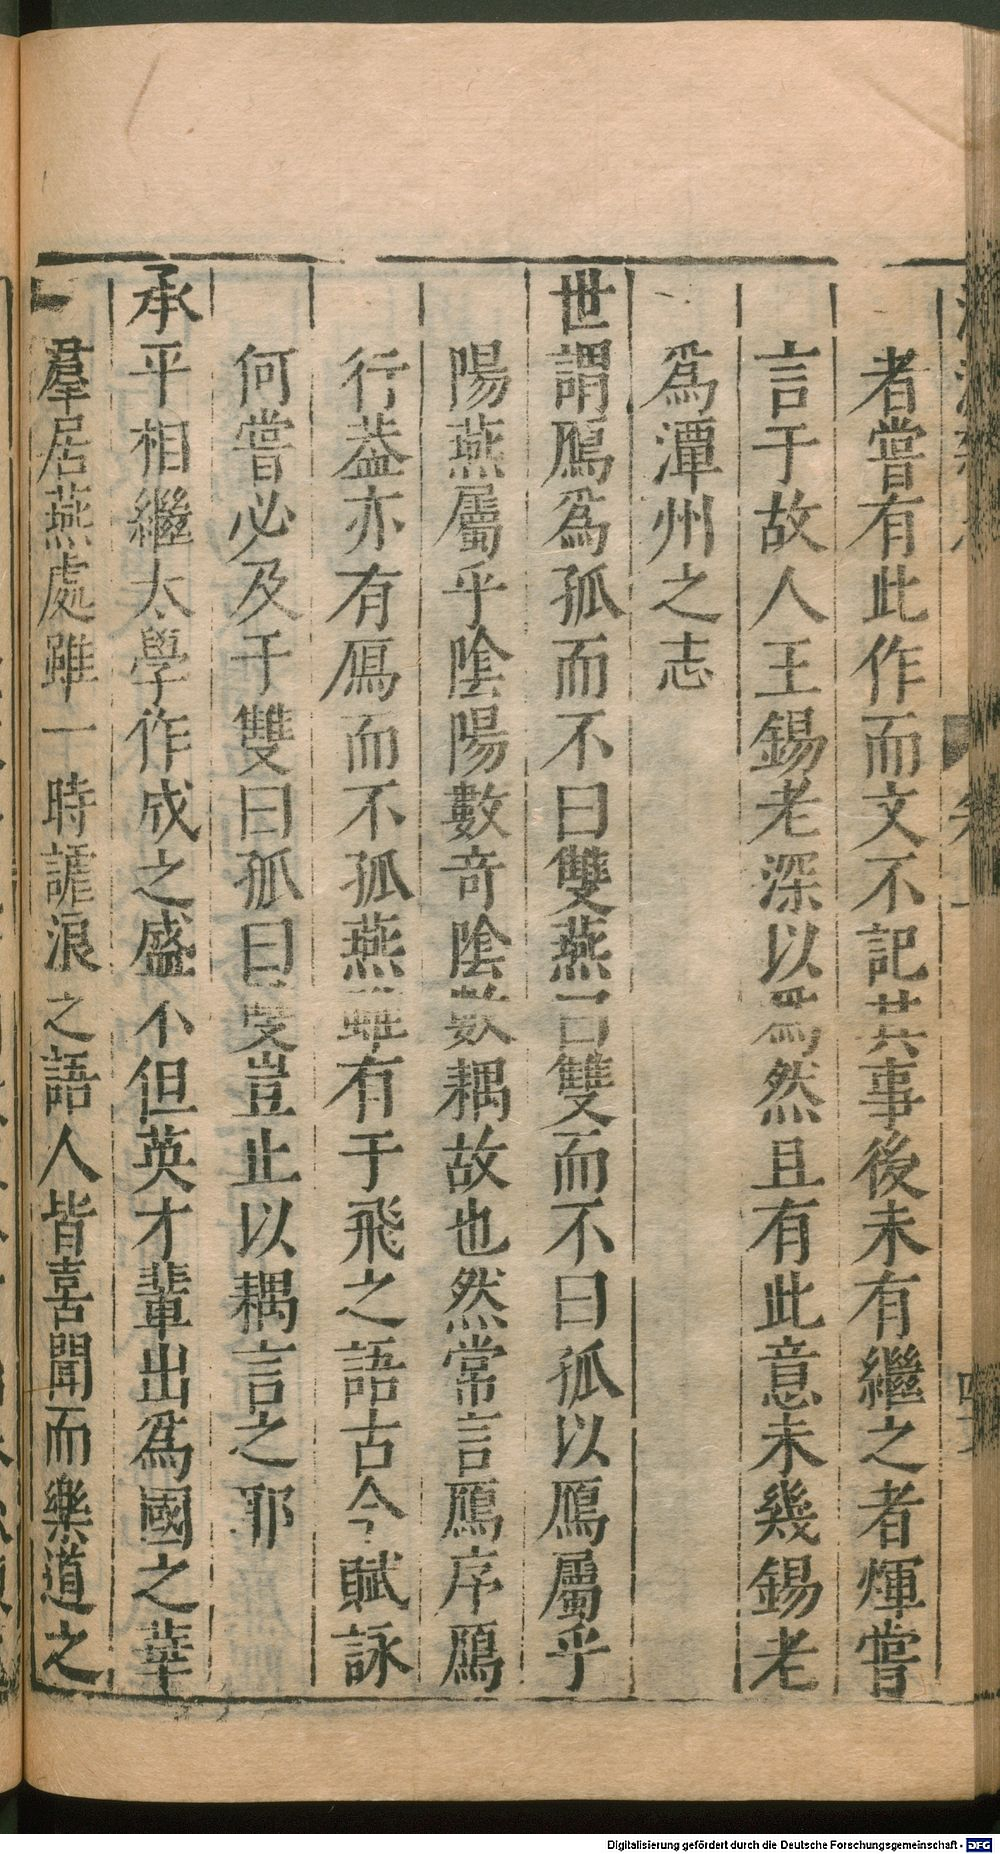 者嘗有此作而文不記其事後未有繼之者煇嘗
言于故人王錫老深以爲然且有此意未幾錫老
爲潭州之志
世謂鴈爲孤而不曰雙燕曰雙而不曰孤以鴈屬乎
陽燕屬乎陰陽數奇陰數耦故也然常言鴈序鴈
行葢亦有鴈而不孤燕雖有于飛之語古今賦詠
何嘗必及于雙曰孤曰雙豈止以耦言之耶
承平相繼太學作成之盛不但英才輩出爲國之華
羣居燕處雖一時謔浪之語人皆喜聞而樂道之
Digitalisierung gefördert durch die Deutsche Forschungsgemeinschaft - DFG